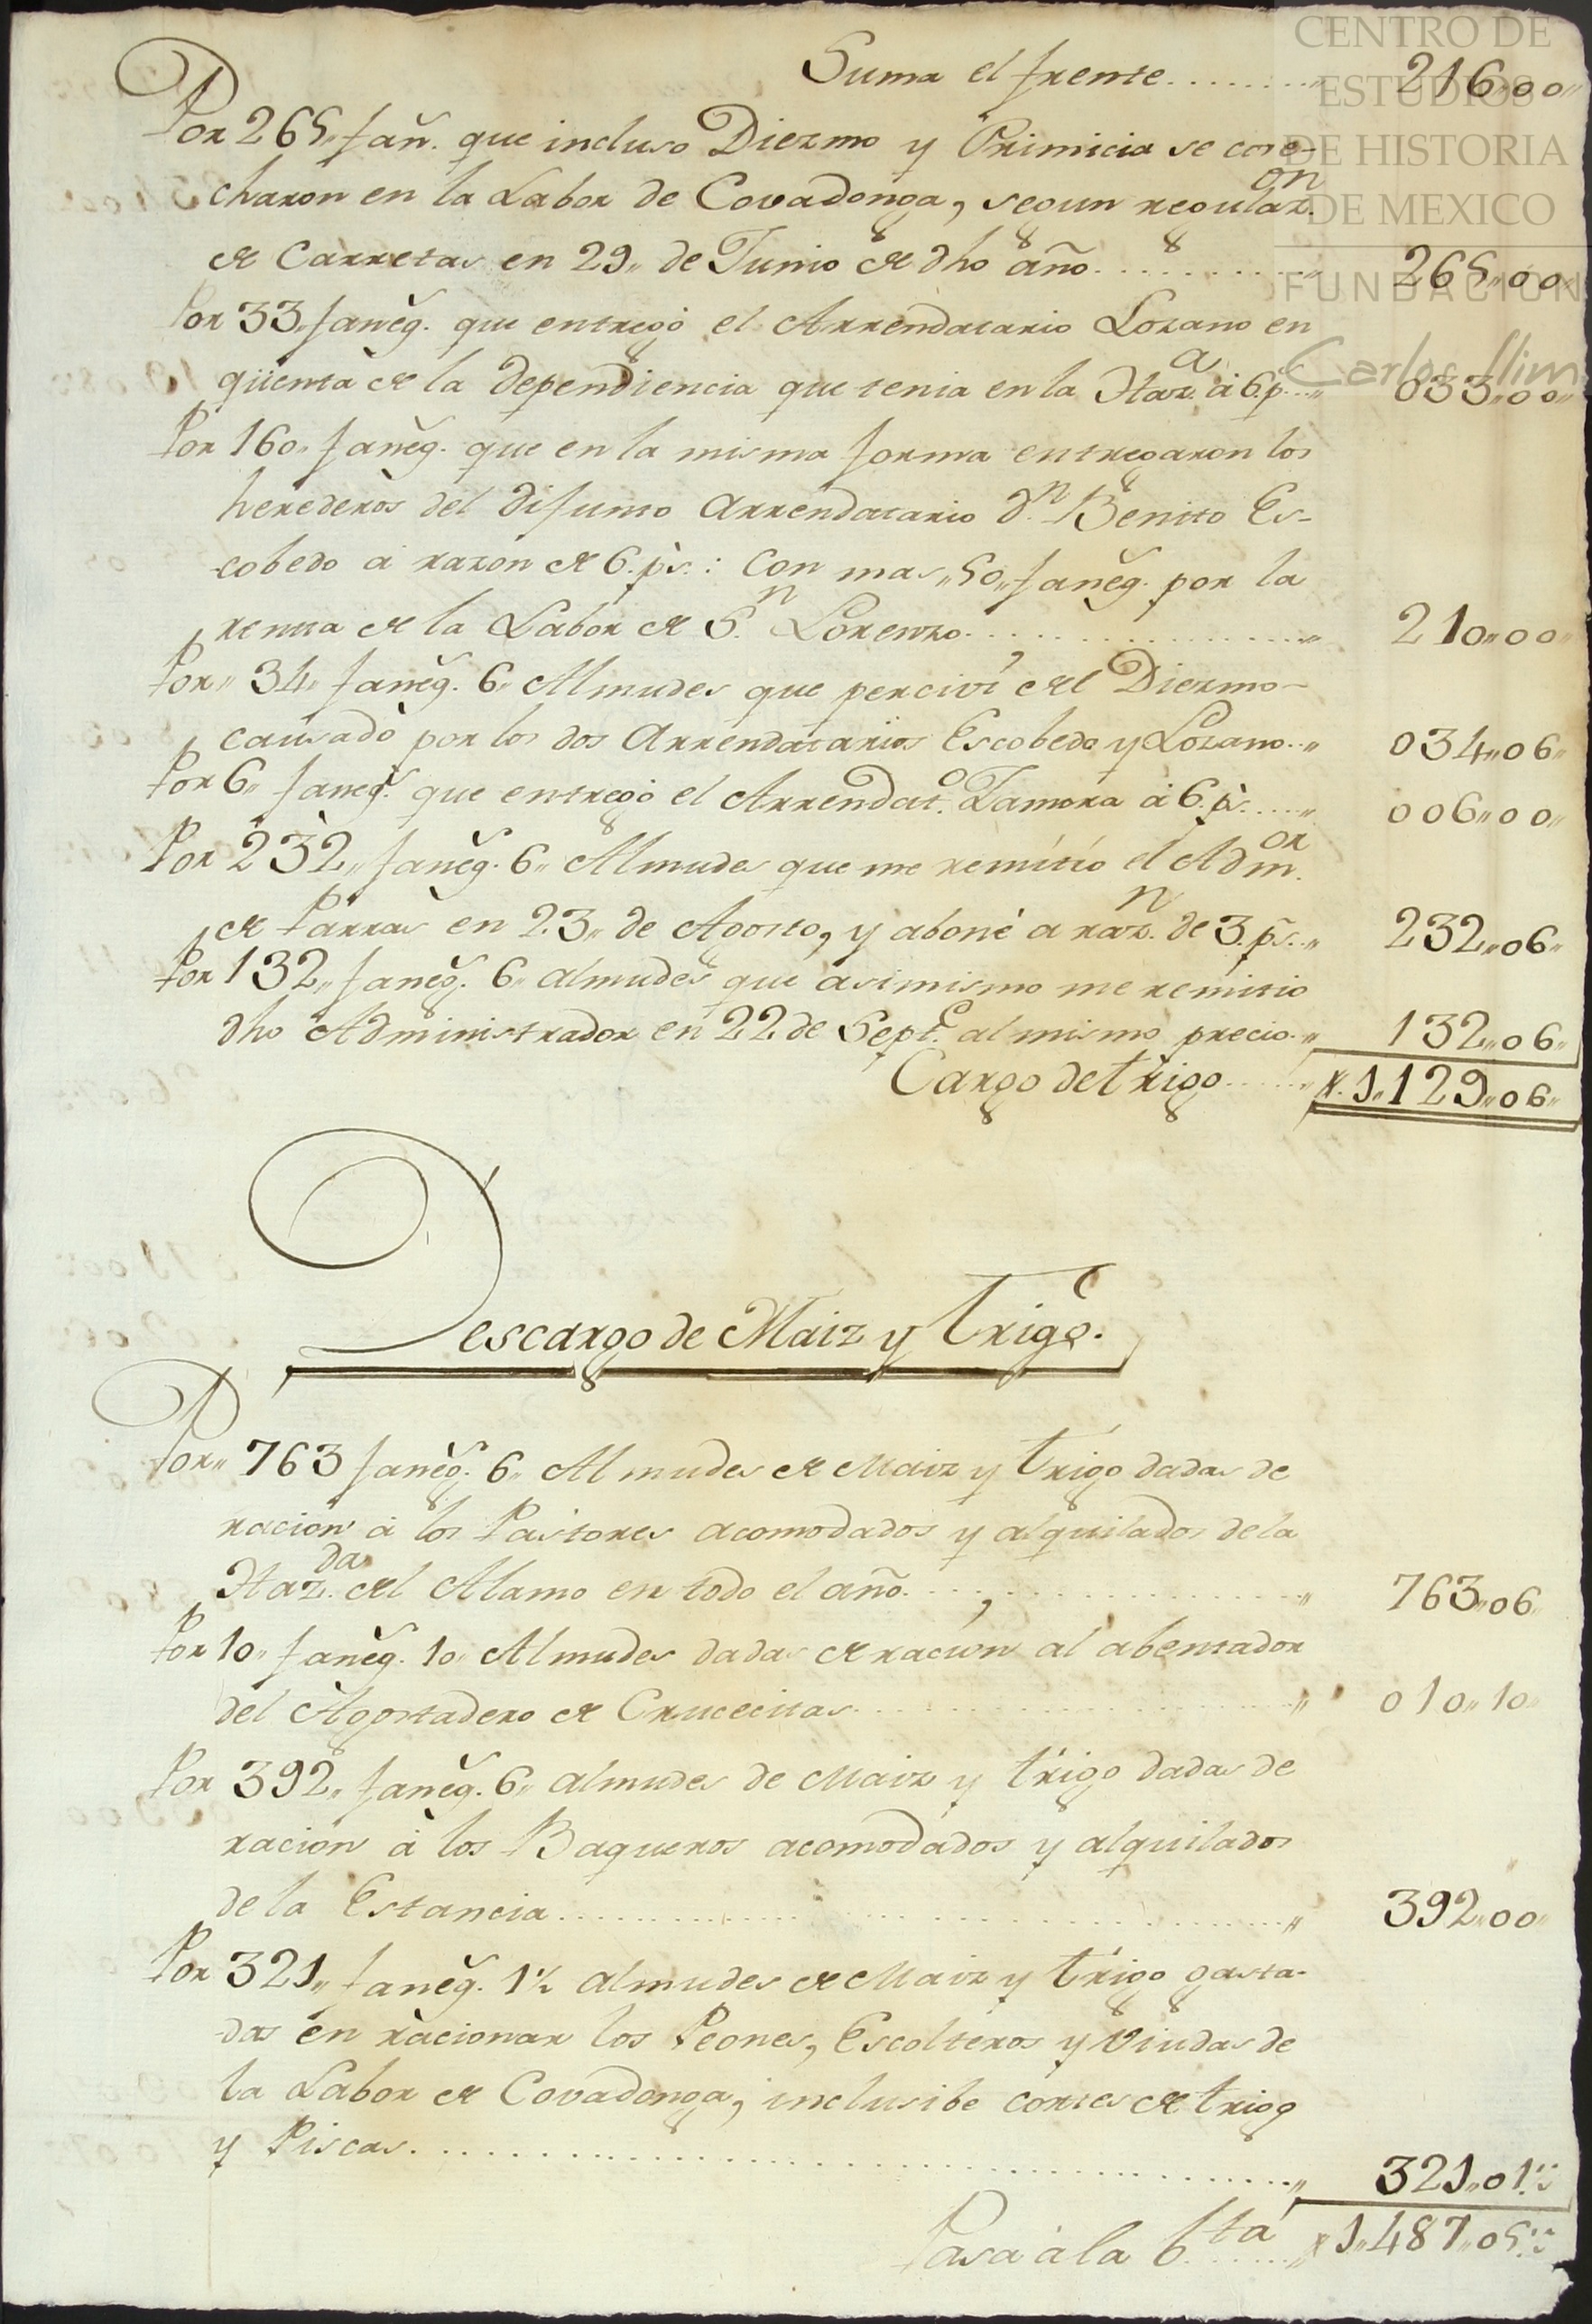 CENTRO DE
ESTUDIOS
DE HISTORIA
DE MEXICO
FUNDACIÓN
Carlos Slim
Suma el frente........,, 216,,00,,
Por 265,, fañ. que incluso Diezmo y Primicia se cose-
charon en la Labor de Covadonga, segun regulaz.on
de Carretas en 29,, de Junio de dho año...........,, 265,,00,,
Por 33,, faneg. que entregó el Arrendatario Lozano en
qüenta de la dependiencia que tenia en la Haz.a á 6 p...,, 033,,00,,
Por 160,, faneg. que en la misma forma entregaron los
herederos del difunto Arrendatario d.n Benito Es-
cobedo á razon de 6. ps.: con mas,, 50,, faneg. por la
renta de la Labor de S.n Lorenzo..................,, 210,,00,,
Por,, 34,, faneg. 6,, Almudes que perciví del Diezmo-
causado por los dos Arrendatarios Escobedo y Lozano..,, 034,,06,,
Por 6,, faneg. que entregó el Arrendat.o Zamora á 6 ps.....,, 006,,00,,
Por 232,, faneg. 6,, Almudes que me remitió el Adm.or
de Parras en 23,, de Agosto, y aboné a raz.n de 3. ps..,, 232,,06,,
Por 132,, faneg. 6,, almudes que asimismo me remitio
dho Administrador en 22 de Sept.e al mismo precio.,, 132,,06,,
Cargo de trigo......,, 1,,129,,06,,
Descargo de Maiz y Trigo.
Por,, 763 faneg. 6,, Almudes de Maiz y trigo dadas de
racion á los Pastores acomodados y alquilados de la
Haz.da del Alamo en todo el año..................,, 763,,06,,
Por 10,, faneg. 10,, Almudes dadas de racion al abentador
del Agostadero de Crucecitas..................,, 010,,10,,
Por 392,, faneg. 6,, almudes de Maiz y trigo dadas de
racion á los Baqueros acomodados y alquilados
de la Estancia..............................,, 392,,00,,
Por 321,, faneg. 1½ almudes de Maiz y trigo gasta-
das en racionar los Peones, Escolteros y Viudas de
la Labor de Covadonga, inclusibe cortes de trigo
y Piscas........................................,, 321,,01½
Pasa á la b.ta......,, 1,,487,,05½